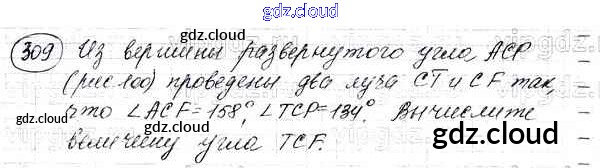 gdz.cloud
309 Из вершины развернутого угла ACP
(рис.100) проведены два луча CT и CF так,
что ∠ACF=158°, ∠TCP=134°. Вычислите
величину угла TCF.
gdz.cloud
gdz.cloud
gdz.cloud